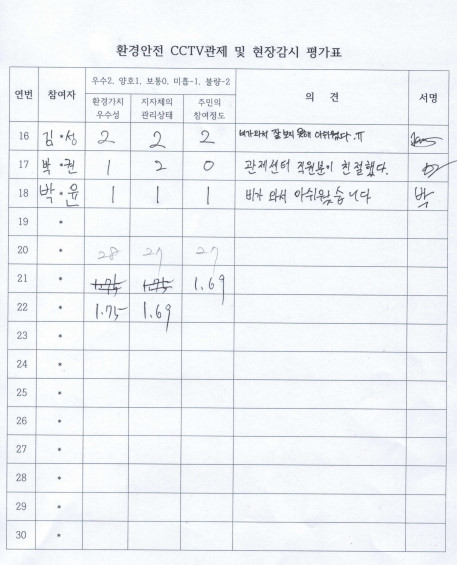 환경안전 CCTV관제 및 현장감시 평가표
연번 참여자 우수2, 양호1, 보통0, 미흡-1, 불량-2 의 견 서명
환경가치 우수성 지자체의 관리상태 주민의 참여정도
16 김 * 성 2 2 2 비가와서 잘 보지 못해 아쉬웠다. ㅠ
17 박 * 권 1 2 0 관제센터 직원분이 친절했다.
18 박 * 윤 1 1 1 비가 와서 아쉬웠습니다 박
19 *
20 * 28 27 27
21 * 1.75 1.75 1.69
22 * 1.75 1.69
23 *
24 *
25 *
26 *
27 *
28 *
29 *
30 *